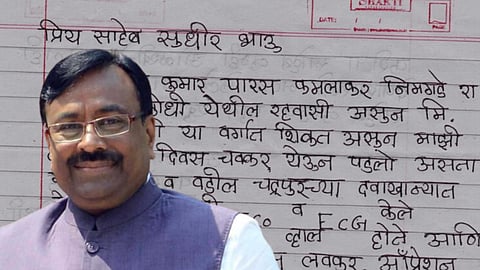 प्रिय साहेब सुधीर भाऊ
कुमार पारस कमलाकर निमगडे रा
येथील रहवासी असुन मि.
या वर्गात शिकत असुन माझी
दिवस चक्कर येऊन पडलो असता
व वडील चंद्रपुरच्या दवाखान्यात
व ECG केले
होते आणि
लवकर ऑप्रेशन